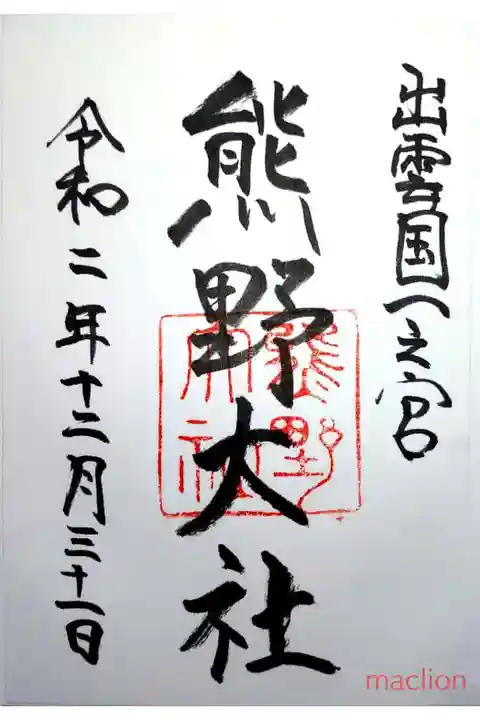 出雲国一之宮
熊野大社
熊野
大社
令和二年十二月三十一日
maclion